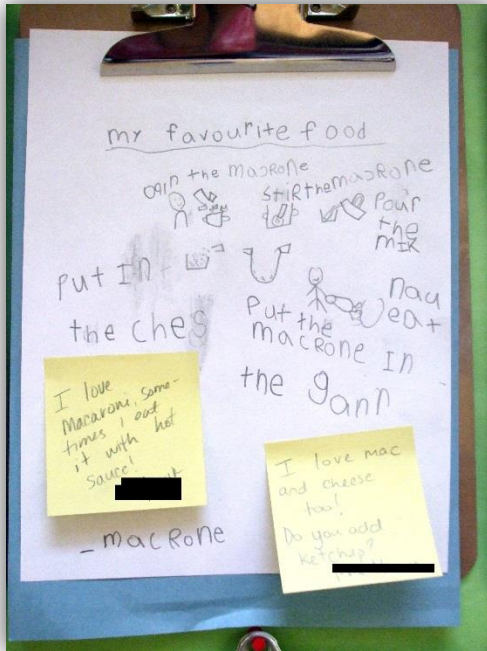 my favourite food
opin the macRone
StiRthemacRone
Pour
the
mix
Put In
the ches
Put the
macRone In
the gann
nau
eat
I love
Macaroni, some-
times I eat
it with hot
sauce!
I love mac
and cheese
too!
Do you add
ketchup?
- macRone